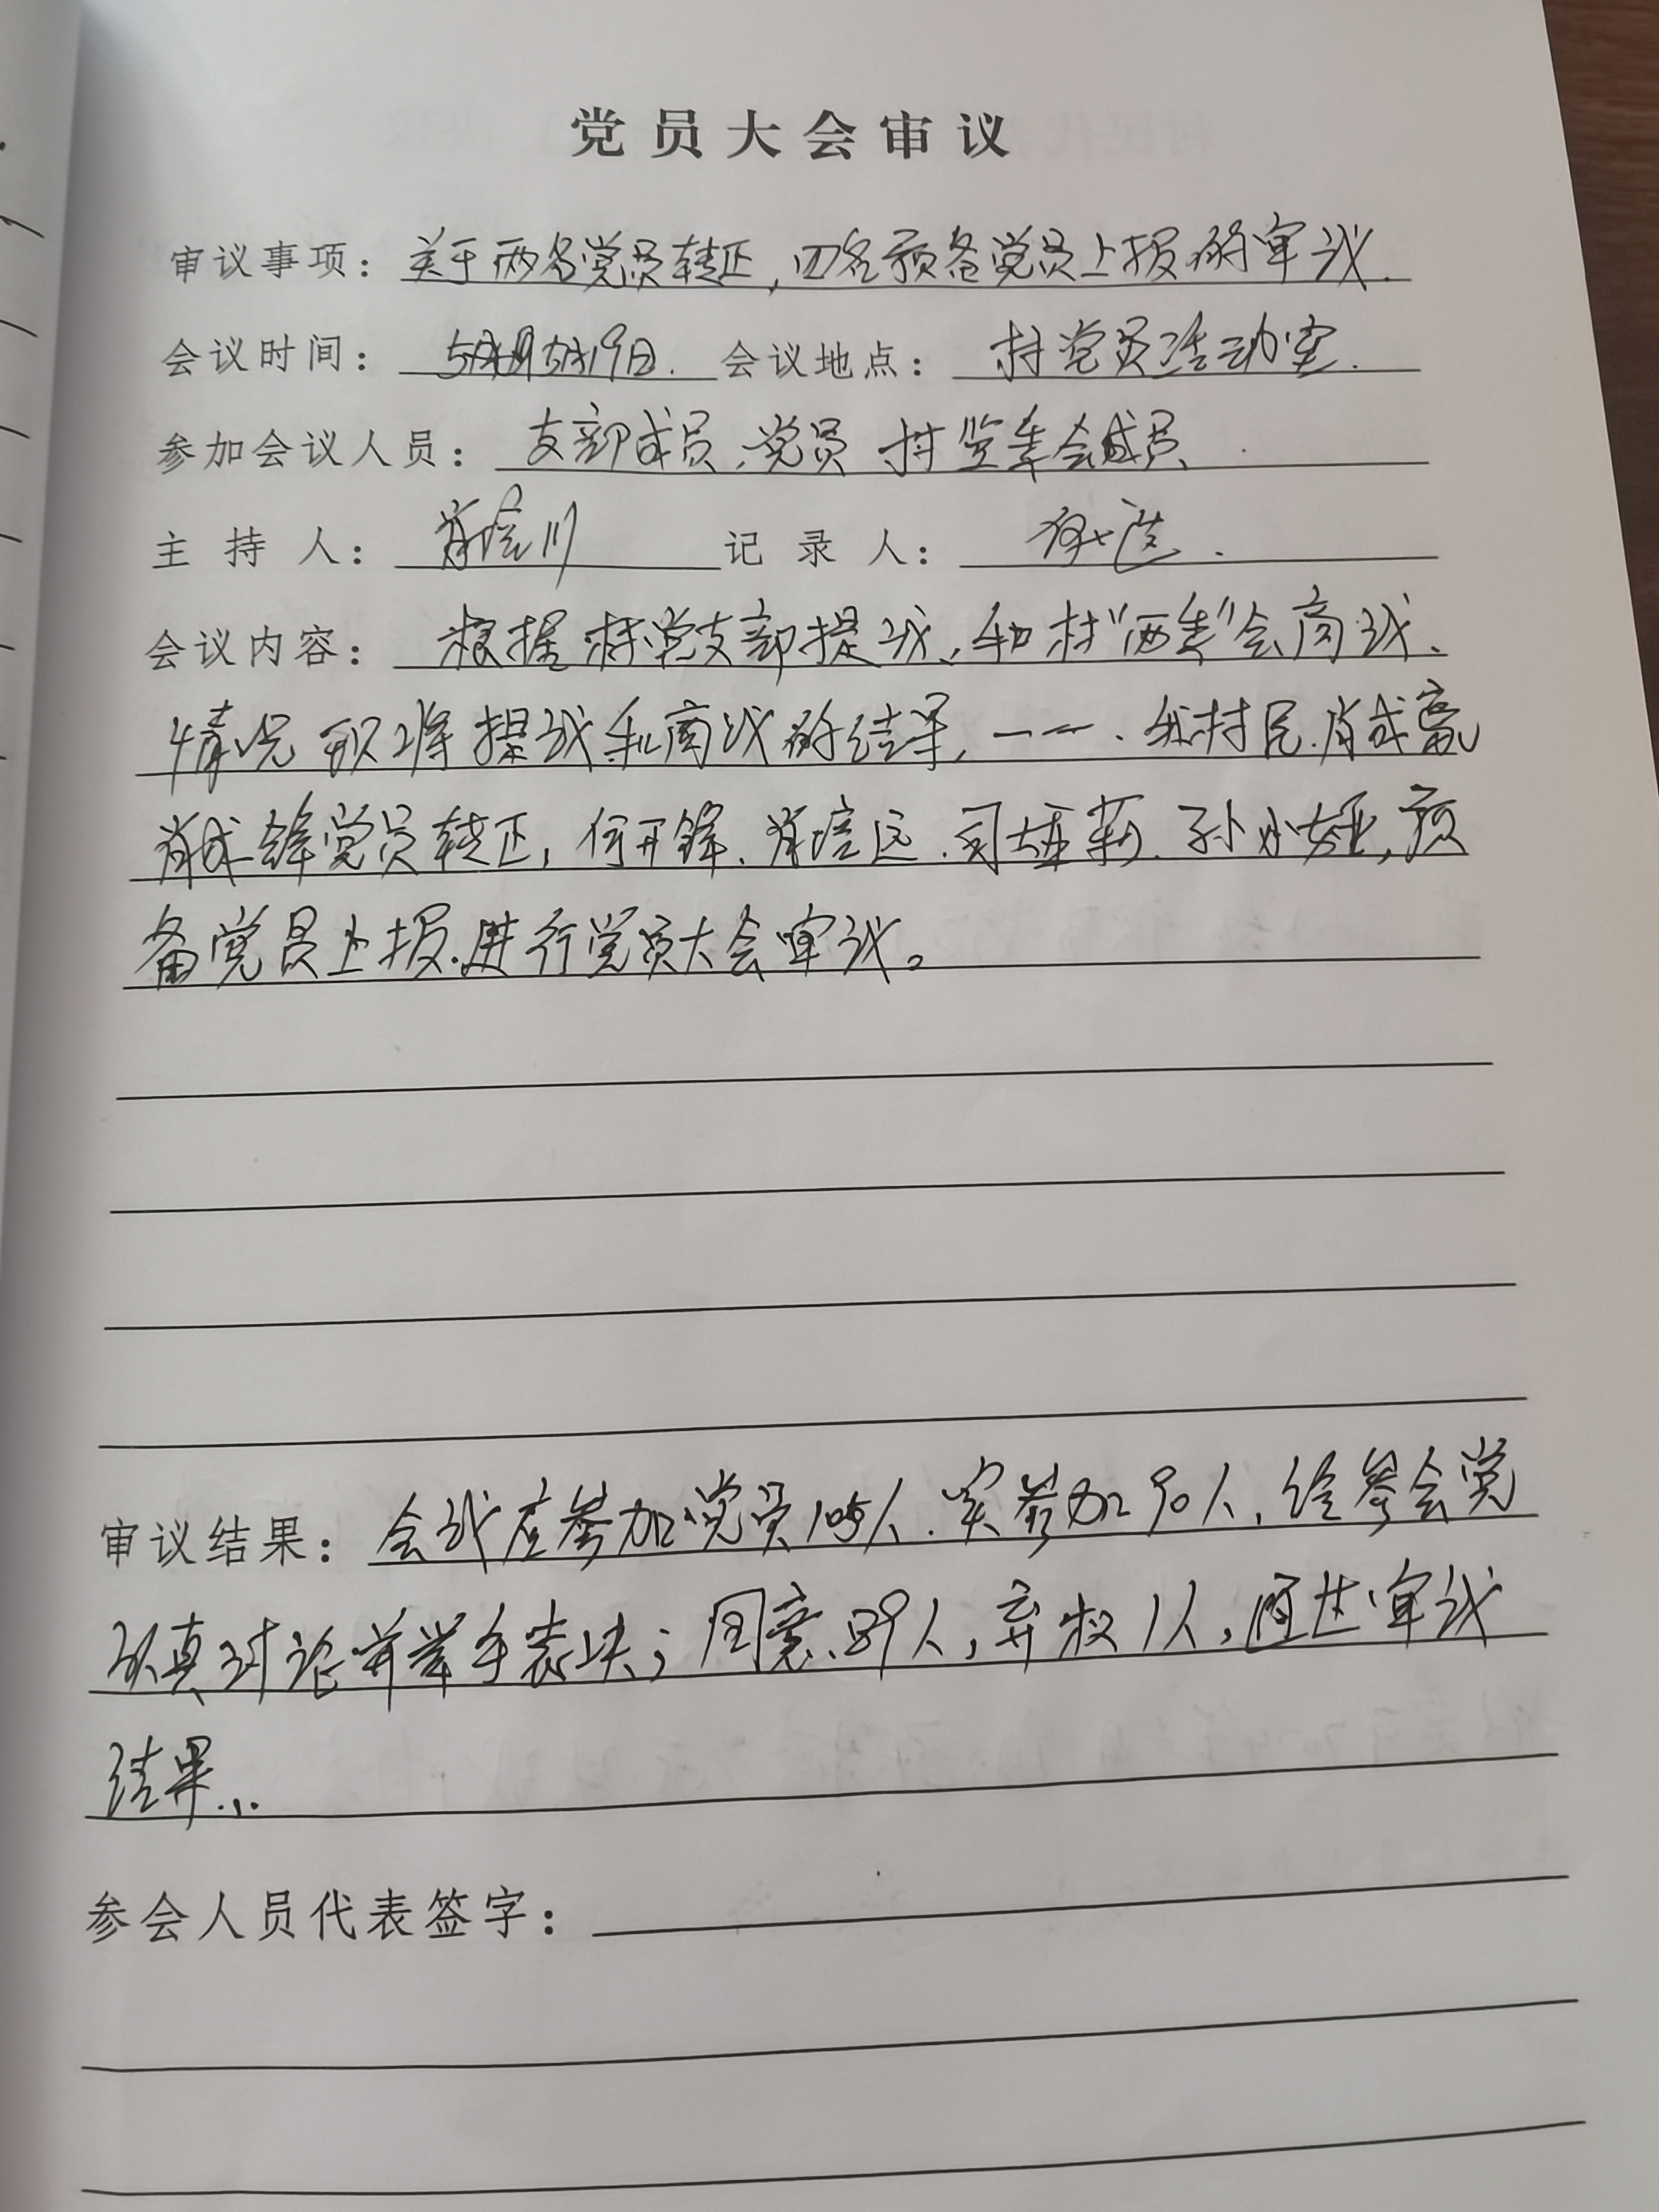 党员大会审议
审议事项：关于两名党员转正，四名预备党员上报的审议.
会议时间：5月19日. 会议地点：村党员活动室.
参加会议人员：支部成员、党员 村监委会成员
主 持 人：肖培川 记 录 人：
会议内容：根据村党支部提议，和村“两委”会商议、
情况 现将提议和商议的结果，一一. 我村民.肖成富
肖成锋党员转正，何开锋、肖培远、司莉、孙小娅，预
备党员上报.进行党员大会审议。
审议结果：会议应参加党员105人.实参加90人，经参会党
认真讨论并举手表决；同意89人，弃权1人，通过审议
结果...
参会人员代表签字：